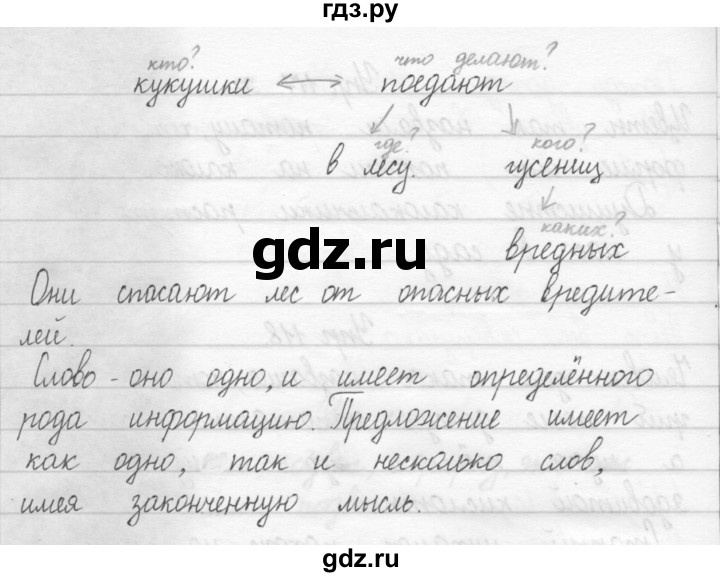 гдз.ру
кто? что делают?
кукушки ⟷ поедают
где? кого?
в лесу. гусениц
каких?
вредных
gdz.ru
Они спасают лес от опасных вредите-
лей.
Слово - оно одно, и имеет определённого
рода информацию. Предложение имеет
как одно, так и несколько слов,
имея законченную мысль.
gdz.ru